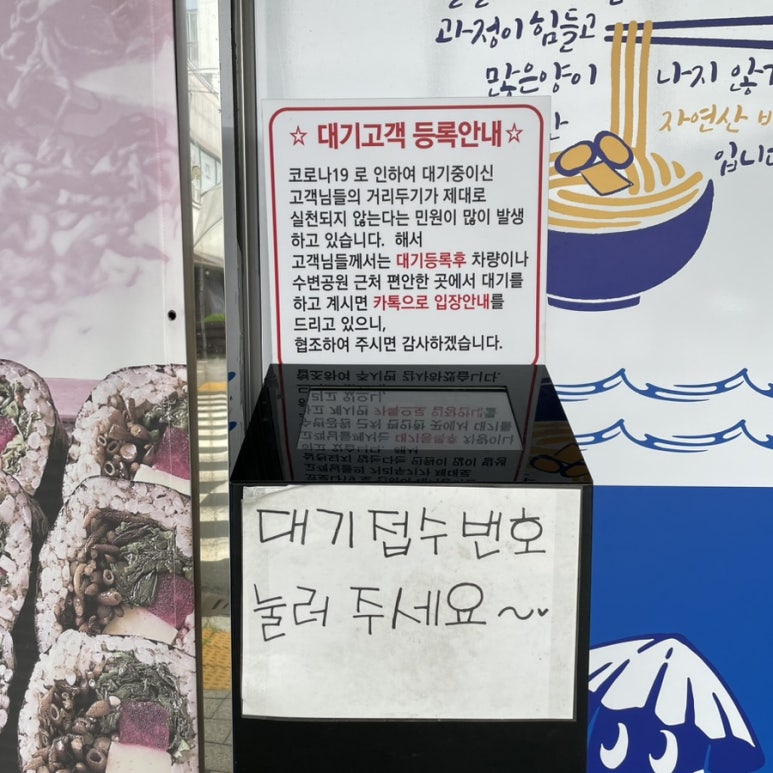 과정이 힘들고
많은양이 나지 않
자연산
☆ 대기고객 등록안내☆
코로나19 로 인하여 대기중이신
고객님들의 거리두기가 제대로
실천되지 않는다는 민원이 많이 발생
하고 있습니다. 해서
고객님들께서는 대기등록후 차량이나
수변공원 근처 편안한 곳에서 대기를
하고 계시면 카톡으로 입장안내를
드리고 있으니,
협조하여 주시면 감사하겠습니다.
대기접수번호
눌러 주세요~